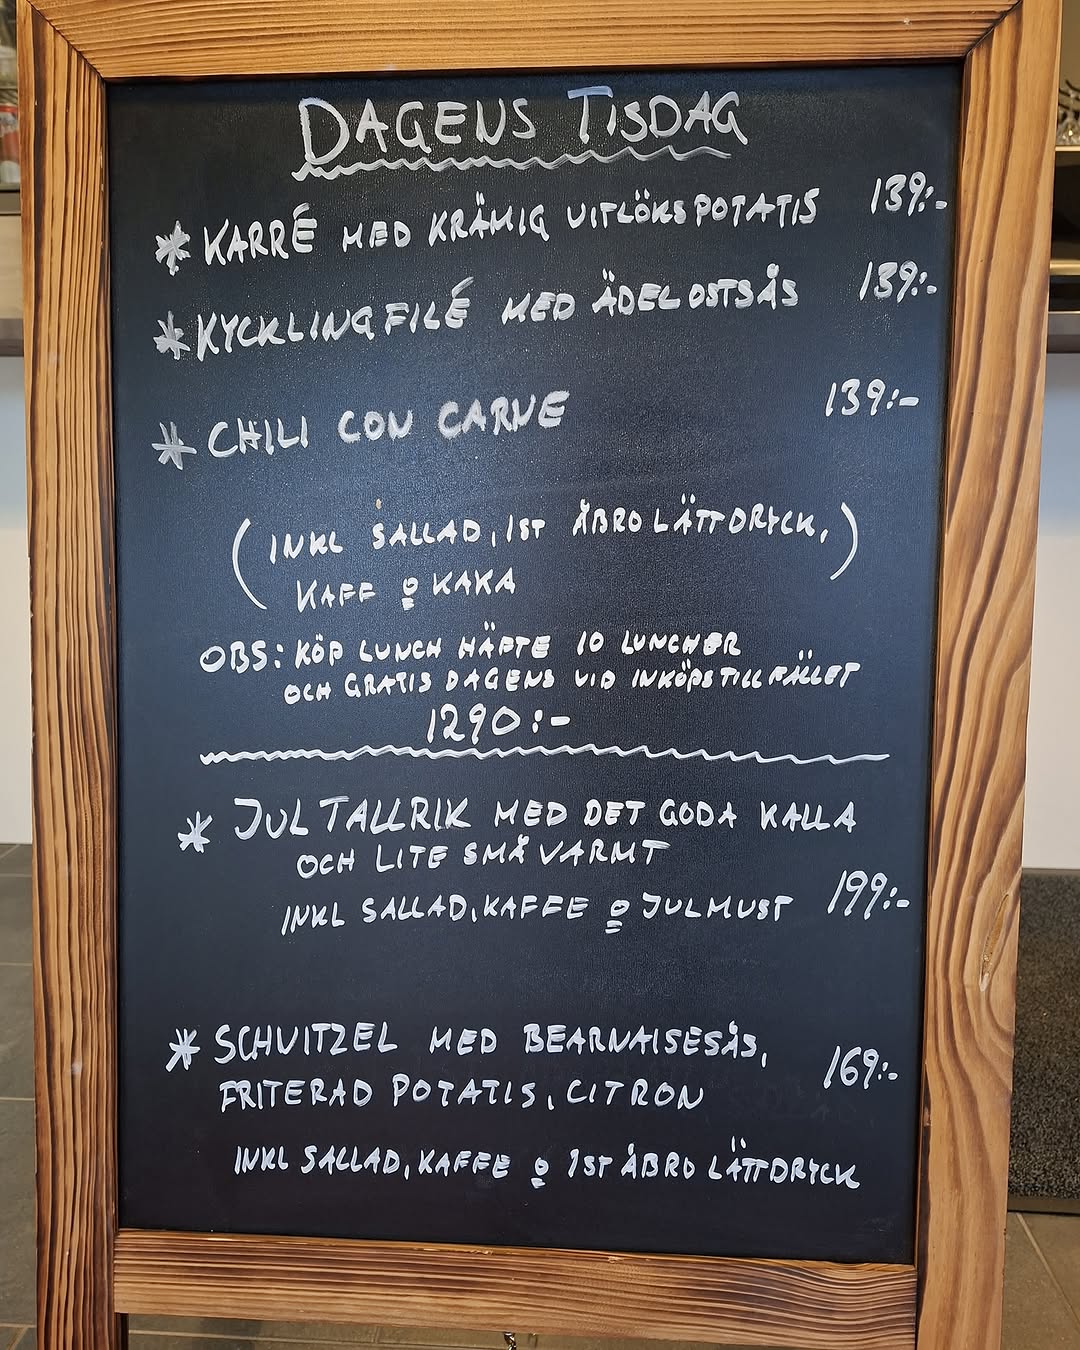 DAGENS TISDAG
* KARRÉ MED KRÄMIG VITLÖKSPOTATIS 139:-
* KYCKLINGFILÉ MED ÄDELOSTSÅS 139:-
* CHILI CON CARNE 139:-
(INKL SALLAD, 1ST ÅBRO LÄTTDRYCK,)
KAFF O KAKA
OBS: KÖP LUNCH HÄFTE 10 LUNCHER
OCH GRATIS DAGENS VID INKÖPSTILLFÄLLET
1290:-
* JUL TALLRIK MED DET GODA KALLA
OCH LITE SMÅ VARMT
INKL SALLAD, KAFFE O JULMUST 199:-
* SCHNITZEL MED BEARNAISESÅS,
FRITERAD POTATIS, CITRON 169:-
INKL SALLAD, KAFFE O 1ST ÅBRO LÄTTDRYCK